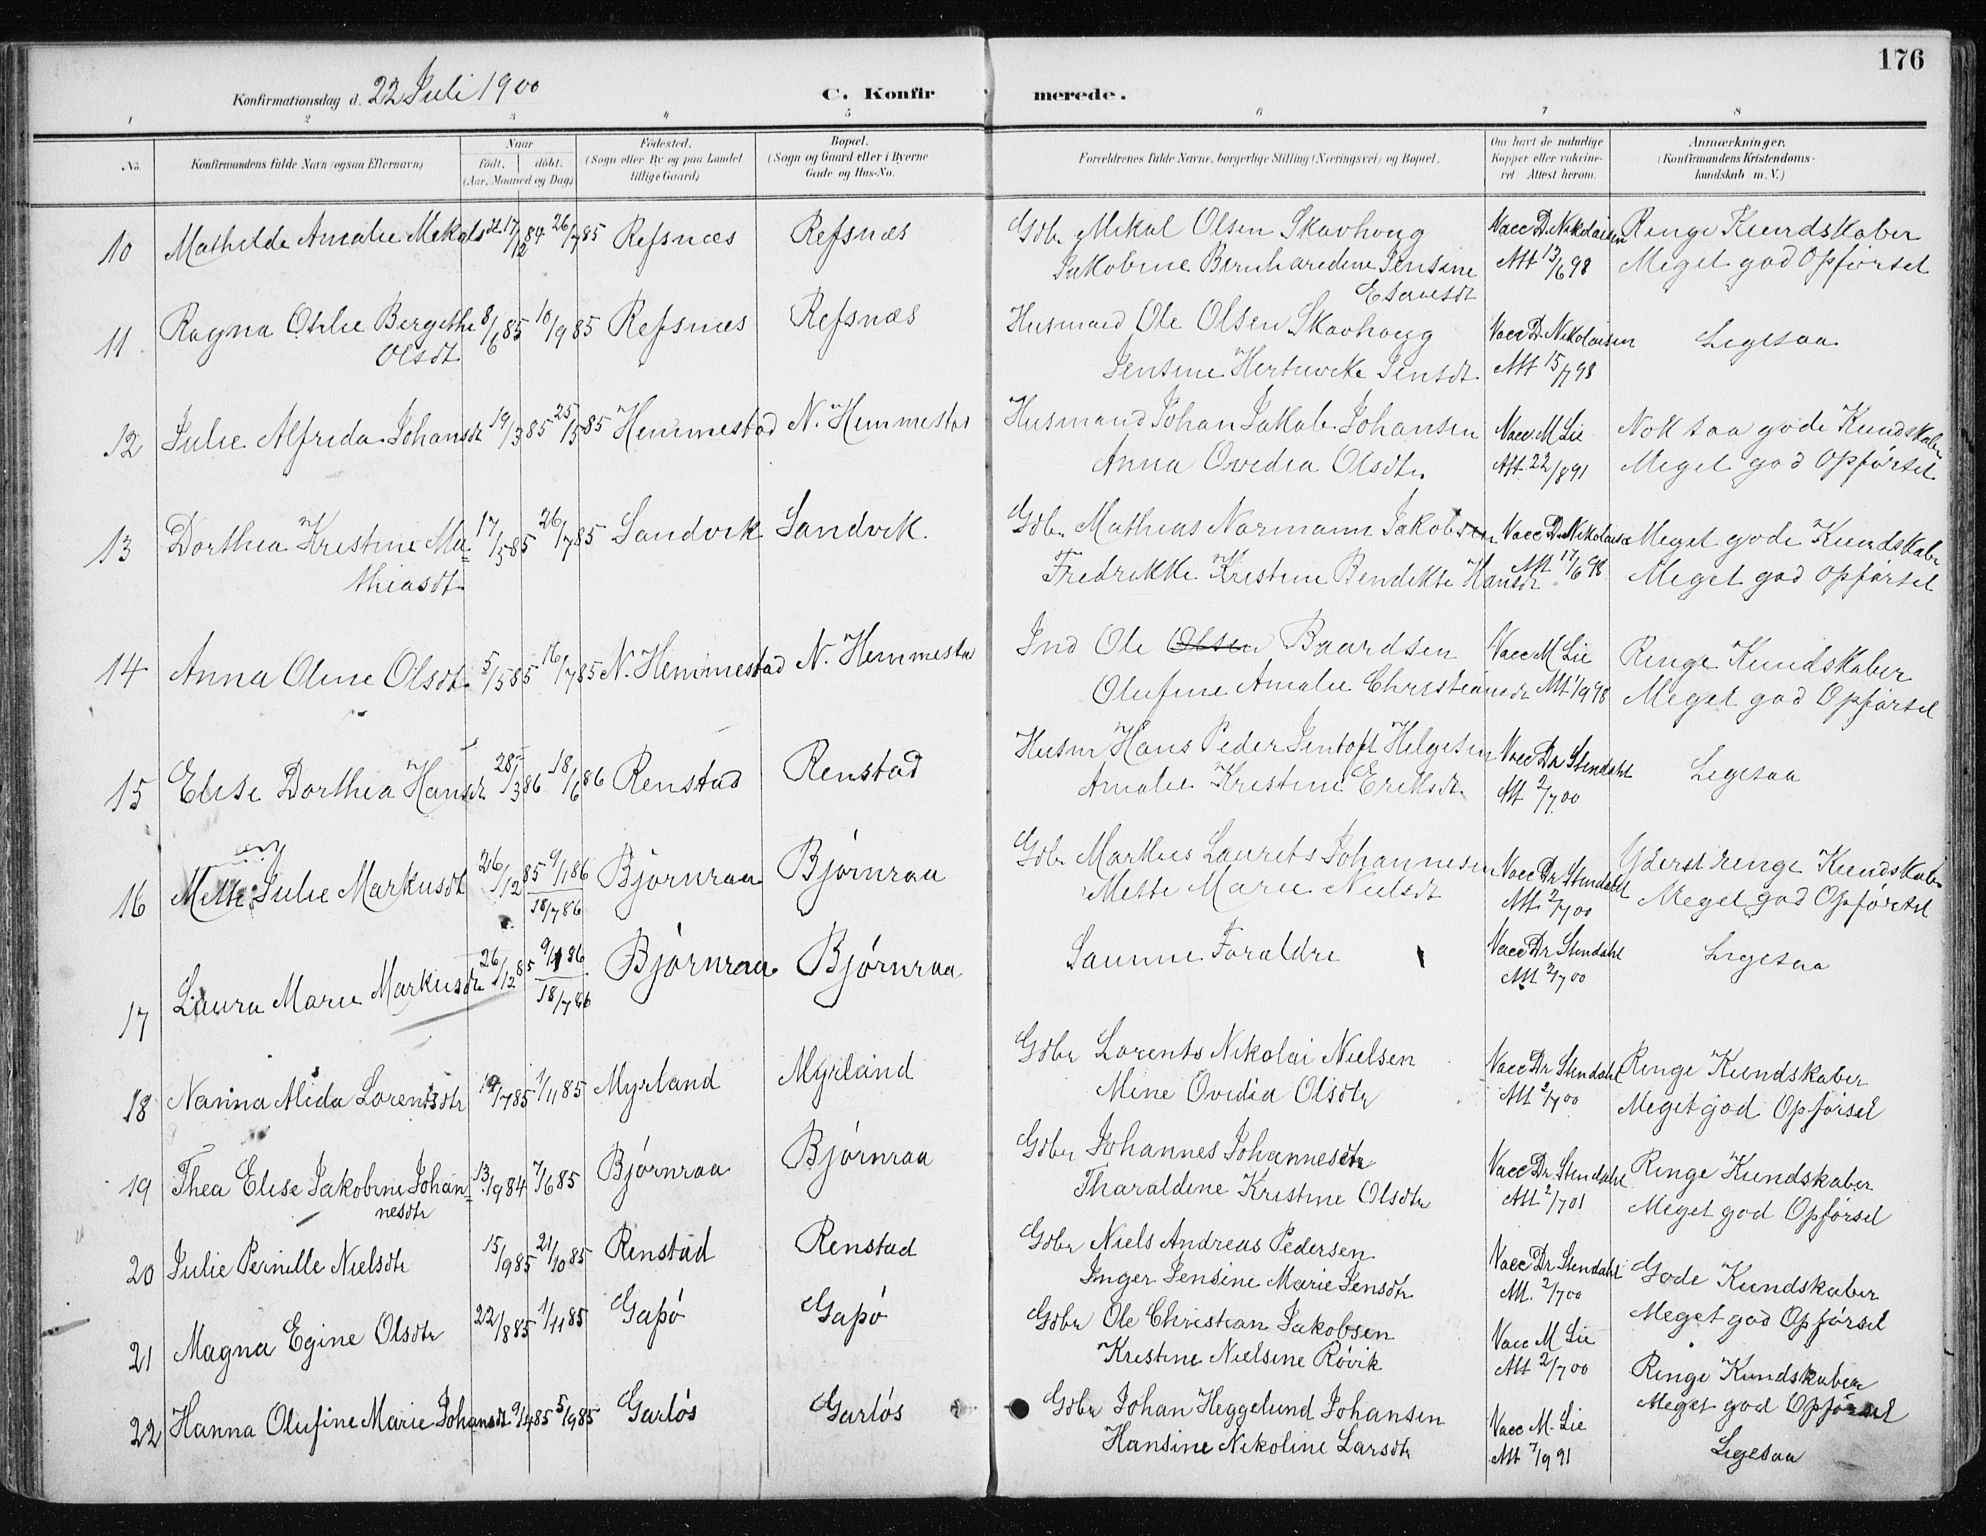 176
Konfirmationsdag d. 22 Juli 1900 C. Konfirmerede.
1 2 3 4 5 6 7 8
No. Konfirmandens fulde Navn (ogsaa Efternavn) Naar født. døbt. (Aar, Maaned og Dag) Fødested. (Sogn eller By og paa Landet tillige Gaard) Bopæl. (Sogn og Gaard eller i Byerne Gade og Hus-No. Forældrenes fulde Navne, borgerlige Stilling (Næringsvei) og Bopæl. Om havt de naturlige Kopper eller vakcineret Attest herom. Anmærkninger. (Konfirmandens Kristendomskundskab m. V.)
10 Mathilde Amalie Mekalsdt 17/12 84 26/7 85 Refsnæs Refsnæs Gdbr Mekal Olsen Skavhoug Vacc D. Nikolaisen Ringe Kundskaber
Jakobine Bernhardine Jensine Att 13/6 98 Meget god Opførsel
Esaiasdt
11 Ragna Otilie Bergithe 8/6 85 10/9 85 Refsnæs Refsnæs Husmand Ole Olsen Skavhoug Vacc Dr. Nikolaisen Ligesaa
Olsdt Jensine Hertvikke Jensdt Att 15/7 98
12 Julie Alfrida Johansdt 19/3 85 25/5 85 Hemmestad N. Hemmestad Husmand Johan Jakob Johansen Vacc M Lie Nok saa gode Kundskaber
Anna Ovedia Olsdtr. Att 22/8 91 Meget god Opførsel
13 Dorthea Kristine Ma= 17/5 85 26/7 85 Sandvik Sandvik. Gdbr Mathias Normann Jakobsen Vacc D. Nikolaisen Meget gode Kundskaber
thiasdt. Fredrikke Kristine Bendikte Hansdt Att 17/6 98 Meget god Opførsel
14 Anna Oline Olsdt. 5/5 85 16/7 85 N. Hemmestad N. Hemmestad Ind Ole Olsen Baardsen Vacc M Lie Ringe Kundskaber
Olufine Amalie Christiansdr Att 1/9 98 Meget god Opførsel
15 Elise Dorthea Hansdt 28/3 86 18/6 86 Renstad Renstad Husm Hans Peder Jentoft Helgesen Vacc Dr Stendahl Ligesaa
Amalie Kristine Eriksdt. Att 2/7 00
16 Mette Julie Markusdt 26/12 85 9/1 86 Bjørnraa Bjørnraa Gdbr Markus Laurits Johannesen Vacc Dr Stendahl Yderst ringe Kundskaber
18/7 86 Mette Marie Nielsdt Att 2/7 00 Meget god Opførsel
17 Laura Marie Markusdt 26/12 85 9/1 86 Bjørnraa Bjørnraa Samme Foraldre Vacc Dr Stendahl Ligesaa
18/7 86 Att 2/7 00
18 Nanna Alida Lorentsdtr 19/7 85 1/11 85 Myrland Myrland Gdbr Lorents Nikolai Nielsen Vacc Dr Stendahl Ringe Kundskaber
Mine Ovidia Olsdtr Att 2/7 00 Meget god Opførsel
19 Thea Elise Jakobine Johan= 13/9 84 7/6 85 Bjørnraa Bjørnraa Gdbr Johannes Vacc Dr Stendahl Ringe Kundskaber
nesdtr Tharaldine Kristine Olsdtr Att 2/7 01 Meget god Opførsel
20 Julie Pernille Nielsdtr 15/9 85 21/10 85 Renstad Renstad Gdbr Niels Andreas Pedersen Vacc Dr Stendahl Gode Kundskaber
Inger Jensine Marie Jensdtr Att. 2/7 00 Meget god Opførsel
21 Magna Egine Olsdtr 22/8 85 1/11 85 Gapø Gapø Gdbr Ole Christian Jakobsen Vacc M Lie Ringe Kundskaber
Kristine Nielsine Røvik Att 2/7 00 Meget god Opførsel
22 Hanna Olufine Marie Johansdt 9/4 85 5/9 85 Garløs Garløs Gdbr Johan Heggelund Johansen Vacc M. Lie Ligesaa
Hansine Nikoline Larsdtr Att 7/9 91